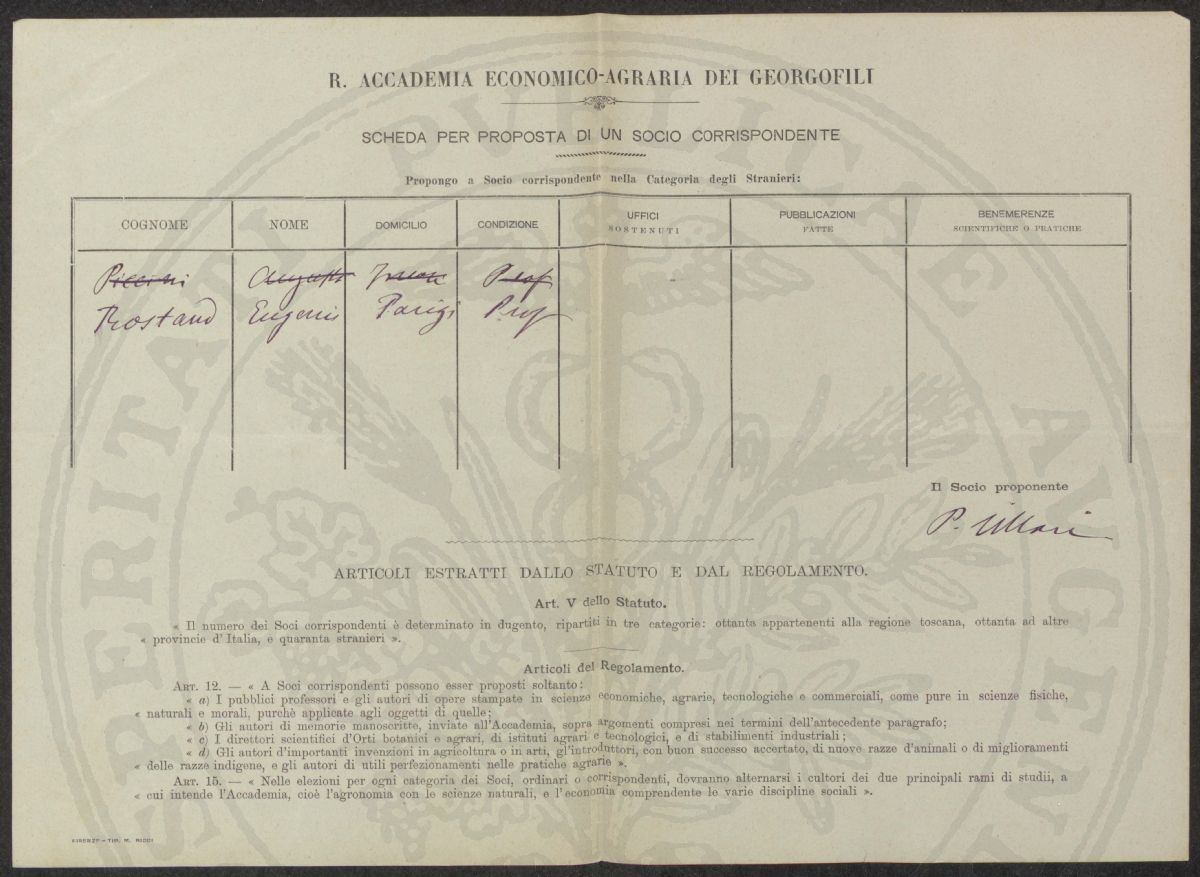 R. ACCADEMIA ECONOMICO-AGRARIA DEI GEORGOFILI
SCHEDA PER PROPOSTA DI UN SOCIO CORRISPONDENTE
Propongo a Socio corrispondente nella Categoria degli Stranieri:
COGNOME NOME DOMICILIO CONDIZIONE UFFICI SOSTENUTI PUBBLICAZIONI FATTE BENEMERENZE SCIENTIFICHE O PRATICHE
Piccini Augusto Prof
Rostand Eugenio Parigi Prof
Il Socio proponente
P. Villari
ARTICOLI ESTRATTI DALLO STATUTO E DAL REGOLAMENTO.
Art. V dello Statuto.
« Il numero dei Soci corrispondenti è determinato in dugento, ripartiti in tre categorie: ottanta appartenenti alla regione toscana, ottanta ad altre
« provincie d'Italia, e quaranta stranieri ».
Articoli del Regolamento.
ART. 12. — « A Soci corrispondenti possono esser proposti soltanto:
« a) I pubblici professori e gli autori di opere stampate in scienze economiche, agrarie, tecnologiche e commerciali, come pure in scienze fisiche,
« naturali e morali, purchè applicate agli oggetti di quelle;
« b) Gli autori di memorie manoscritte, inviate all'Accademia, sopra argomenti compresi nei termini dell'antecedente paragrafo;
« c) I direttori scientifici d'Orti botanici e agrari, di istituti agrari e tecnologici, e di stabilimenti industriali;
« d) Gli autori d'importanti invenzioni in agricoltura o in arti, gl'introduttori, con buon successo accertato, di nuove razze d'animali o di miglioramenti
« delle razze indigene, e gli autori di utili perfezionamenti nelle pratiche agrarie ».
ART. 15. — « Nelle elezioni per ogni categoria dei Soci, ordinari o corrispondenti, dovranno alternarsi i cultori dei due principali rami di studii, a
« cui intende l'Accademia, cioè l'agronomia con le scienze naturali, e l'economia comprendente le varie discipline sociali ».
FIRENZE - TIP. M. RICCI